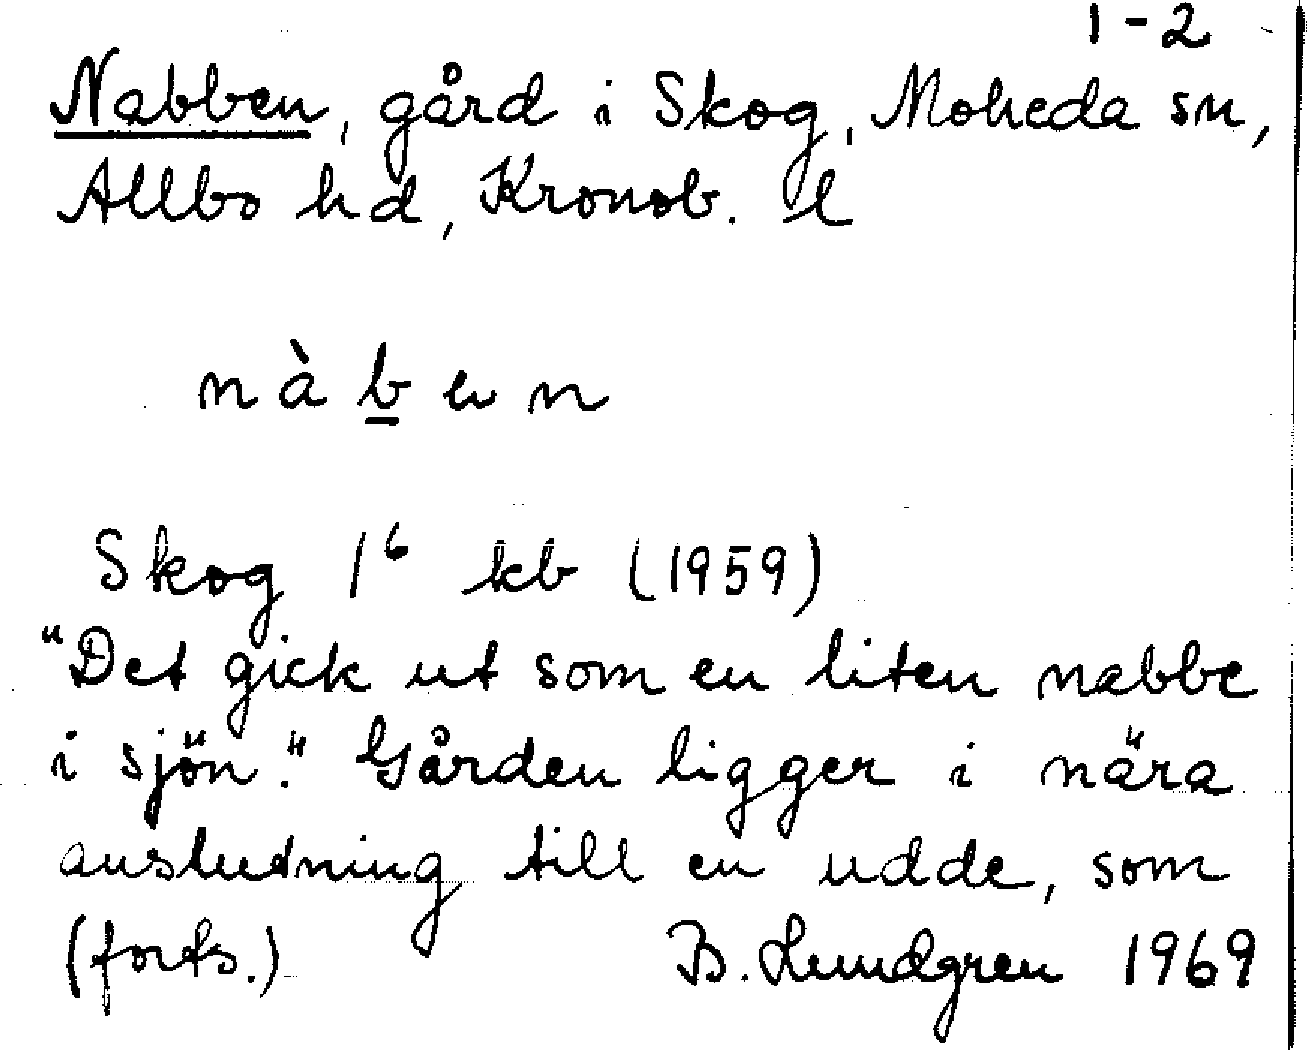 1-2
Nabben, gård i Skog, Moheda sn,
Allbo hd, Kronob. l
nàben
Skog 1⁶ kb (1959)
"Det gick ut som en liten nabbe
i sjön." Gården ligger i nära
anslutning till en udde, som
(forts.) B. Lundgren 1969